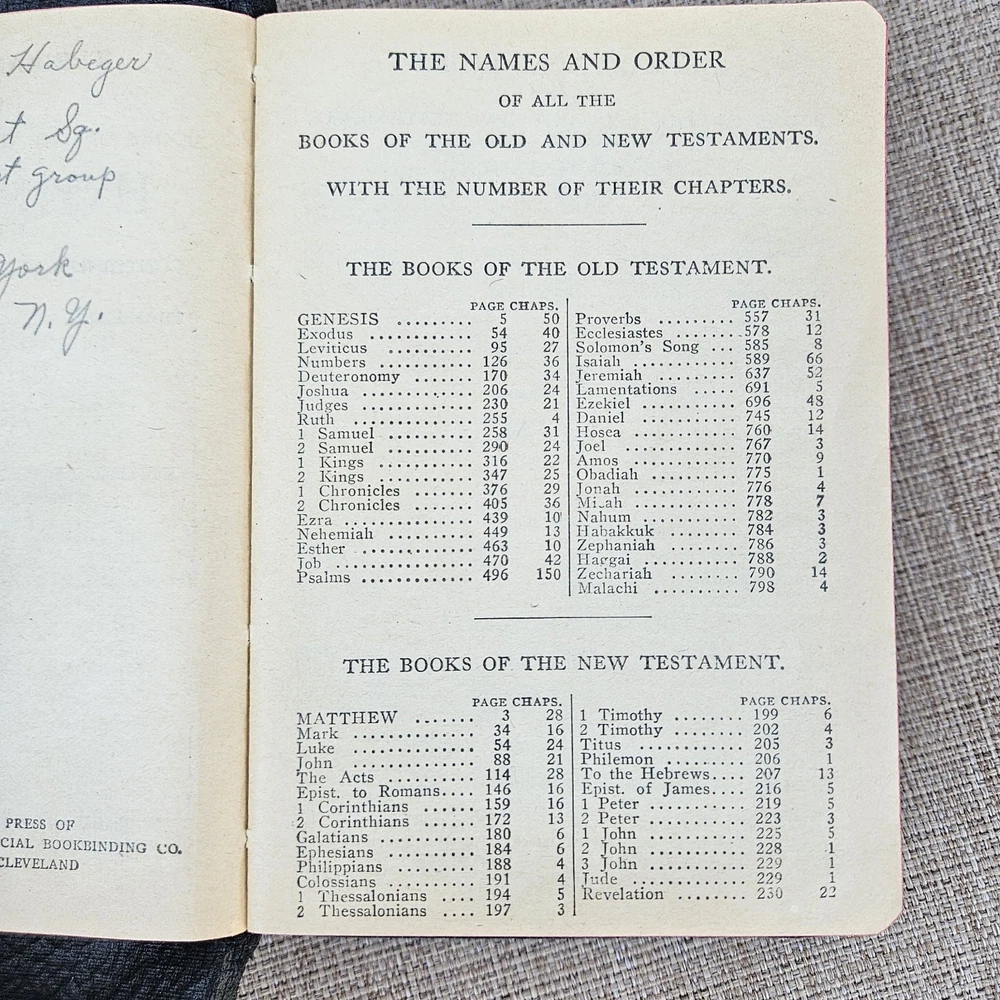 Habeger
t Sq.
t group
York
N.Y.
PRESS OF
CIAL BOOKBINDING CO.
CLEVELAND
THE NAMES AND ORDER
OF ALL THE
BOOKS OF THE OLD AND NEW TESTAMENTS.
WITH THE NUMBER OF THEIR CHAPTERS.
THE BOOKS OF THE OLD TESTAMENT.
PAGE CHAPS.
GENESIS ......... 5 50
Exodus ............ 54 40
Leviticus .......... 95 27
Numbers .......... 126 36
Deuteronomy ....... 170 34
Joshua ............ 206 24
Judges ............ 230 21
Ruth ............. 255 4
1 Samuel .......... 258 31
2 Samuel .......... 290 24
1 Kings ........... 316 22
2 Kings ........... 347 25
1 Chronicles ....... 376 29
2 Chronicles ....... 405 36
Ezra .............. 439 10
Nehemiah ......... 449 13
Esther ............ 463 10
Job ............... 470 42
Psalms ............ 496 150
PAGE CHAPS.
Proverbs ......... 557 31
Ecclesiastes ........ 578 12
Solomon's Song ... 585 8
Isaiah ............ 589 66
Jeremiah .......... 637 52
Lamentations ..... 691 5
Ezekiel ........... 696 48
Daniel ............ 745 12
Hosea ............ 760 14
Joel .............. 767 3
Amos ............. 770 9
Obadiah .......... 775 1
Jonah ............ 776 4
Micah ............ 778 7
Nahum ........... 782 3
Habakkuk ........ 784 3
Zephaniah ........ 786 3
Haggai ........... 788 2
Zechariah ......... 790 14
Malachi .......... 798 4
THE BOOKS OF THE NEW TESTAMENT.
PAGE CHAPS.
MATTHEW ....... 3 28
Mark .............. 34 16
Luke .............. 54 24
John .............. 88 21
The Acts .......... 114 28
Epist. to Romans.... 146 16
1 Corinthians ...... 159 16
2 Corinthians ...... 172 13
Galatians .......... 180 6
Ephesians .......... 184 6
Philippians ........ 188 4
Colossians ......... 191 4
1 Thessalonians .... 194 5
2 Thessalonians .... 197 3
PAGE CHAPS.
1 Timothy ........ 199 6
2 Timothy ........ 202 4
Titus ............. 205 3
Philemon .......... 206 1
To the Hebrews.... 207 13
Epist. of James.... 216 5
1 Peter ........... 219 5
2 Peter ........... 223 3
1 John ............ 225 5
2 John ............ 228 1
3 John ............ 229 1
Jude .............. 229 1
Revelation ........ 230 22